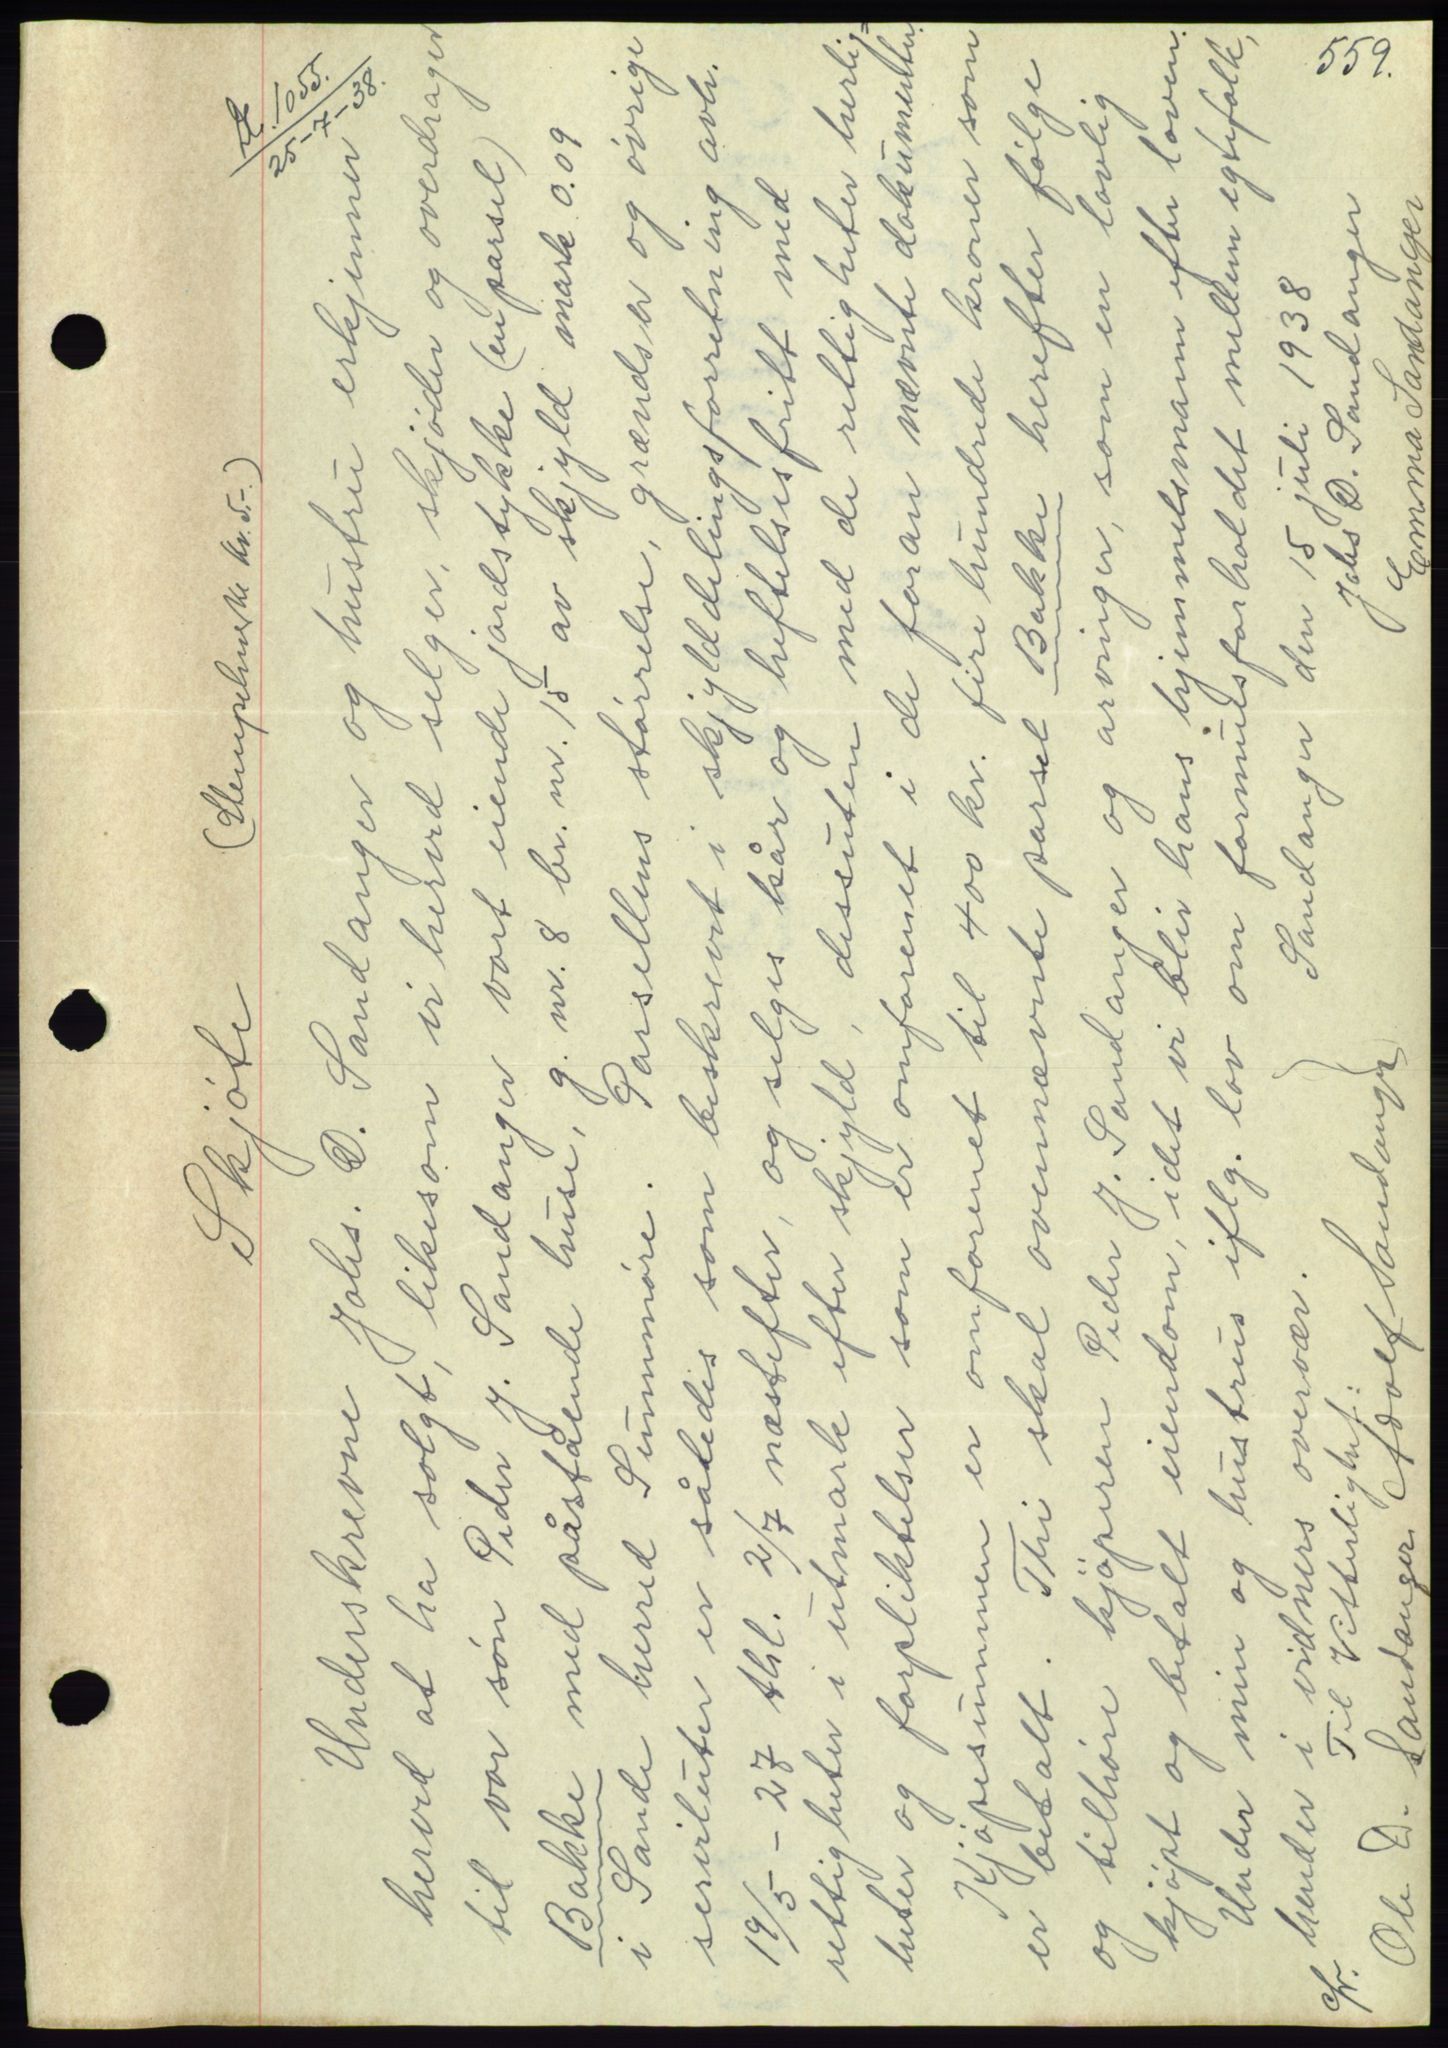 Skjöte (Stempelmerke kr. 5.-)
1055.
25-7-38.
Underskrevne Johs. D. Sandanger og hustru erkjenner
herved at ha solgt, likesom vi herved selger, skjöder og overdrager
til vor sön Peder J. Sandanger vort eiende jordstykke (en parsel)
Bakke med påstående huse, g. nr. 8 br. nr. 15 av skjyld mark 0.09
i Sande herred Sunnmöre. Parsellens störrelse, grændser og övrige
serviluter er således som beskrevt i skjylddelingsforretning avh.
19/5 - 27 thl. 2/7 næstefter, og selges kår og heftelsesfritt med
rettigheter i utmark efter skjyld, dessuten med de rettigheter herlig-
heter og forpliktelser som er omforenet i de foran nævnte dokumenter.
Kjöpesummen er omforenet til 400 kr. fire hundrede kroner som
er betalt. Thi skal ovennævnte parsel Bakke herefter fölge
og tilhöre kjöperen Peder J. Sandanger og arvinger, som en lovlig
kjöpt og betalt eiendom, idet vi blir hans hjemmelsmann efter loven.
Under min og hustrus iflg. lov om formuesforholdet mellem egtefolk,
hender i vidners overvær. Sandanger den 15 juli 1938
Til Vitterlighet: Johs D. Sandanger
Ole D. Sandanger Adolf Sandanger Emma Sandanger
559.